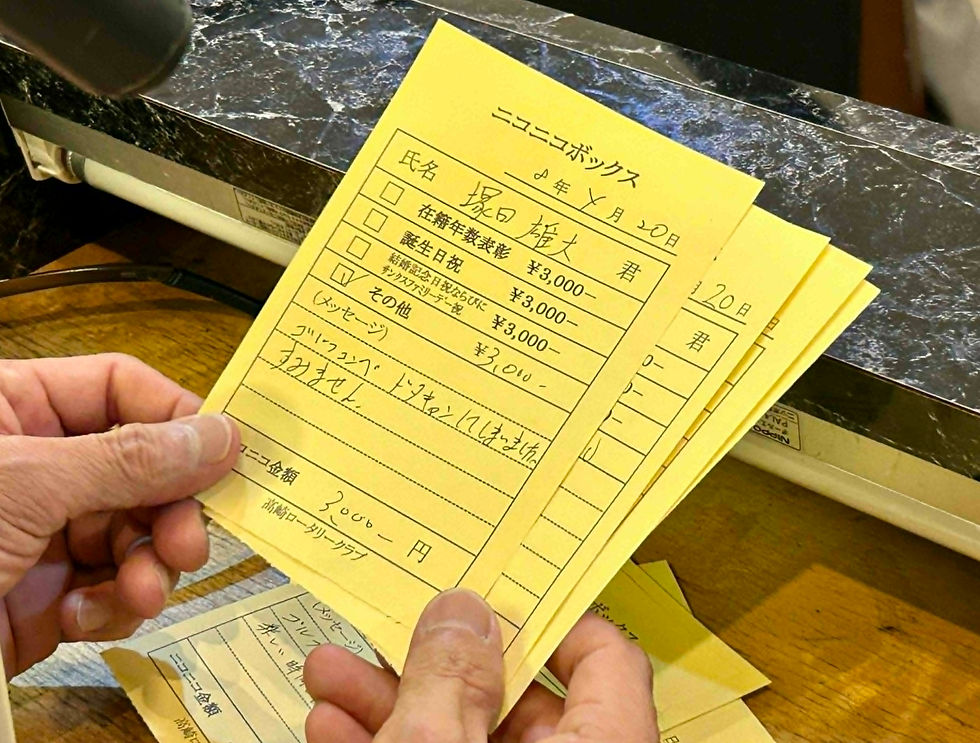 ニコニコボックス
8年 4月 20日
氏名 塚田 雄大 君
在籍年数表彰 ¥3,000−
誕生日祝 ¥3,000−
結婚記念日祝ならびに
サンクスファミリーデー祝 ¥3,000−
その他 ¥3,000-
(メッセージ)
ゴルフコンペ ドタキャンしてしまいました
すみません。
ニコニコ金額 3,000− 円
高崎ロータリークラブ
月 20日
君
0−
0−
−
ボックス
(メッセージ)
ゴルフ
楽しい時
ニコニコ金額
高崎ロ
NIPPO